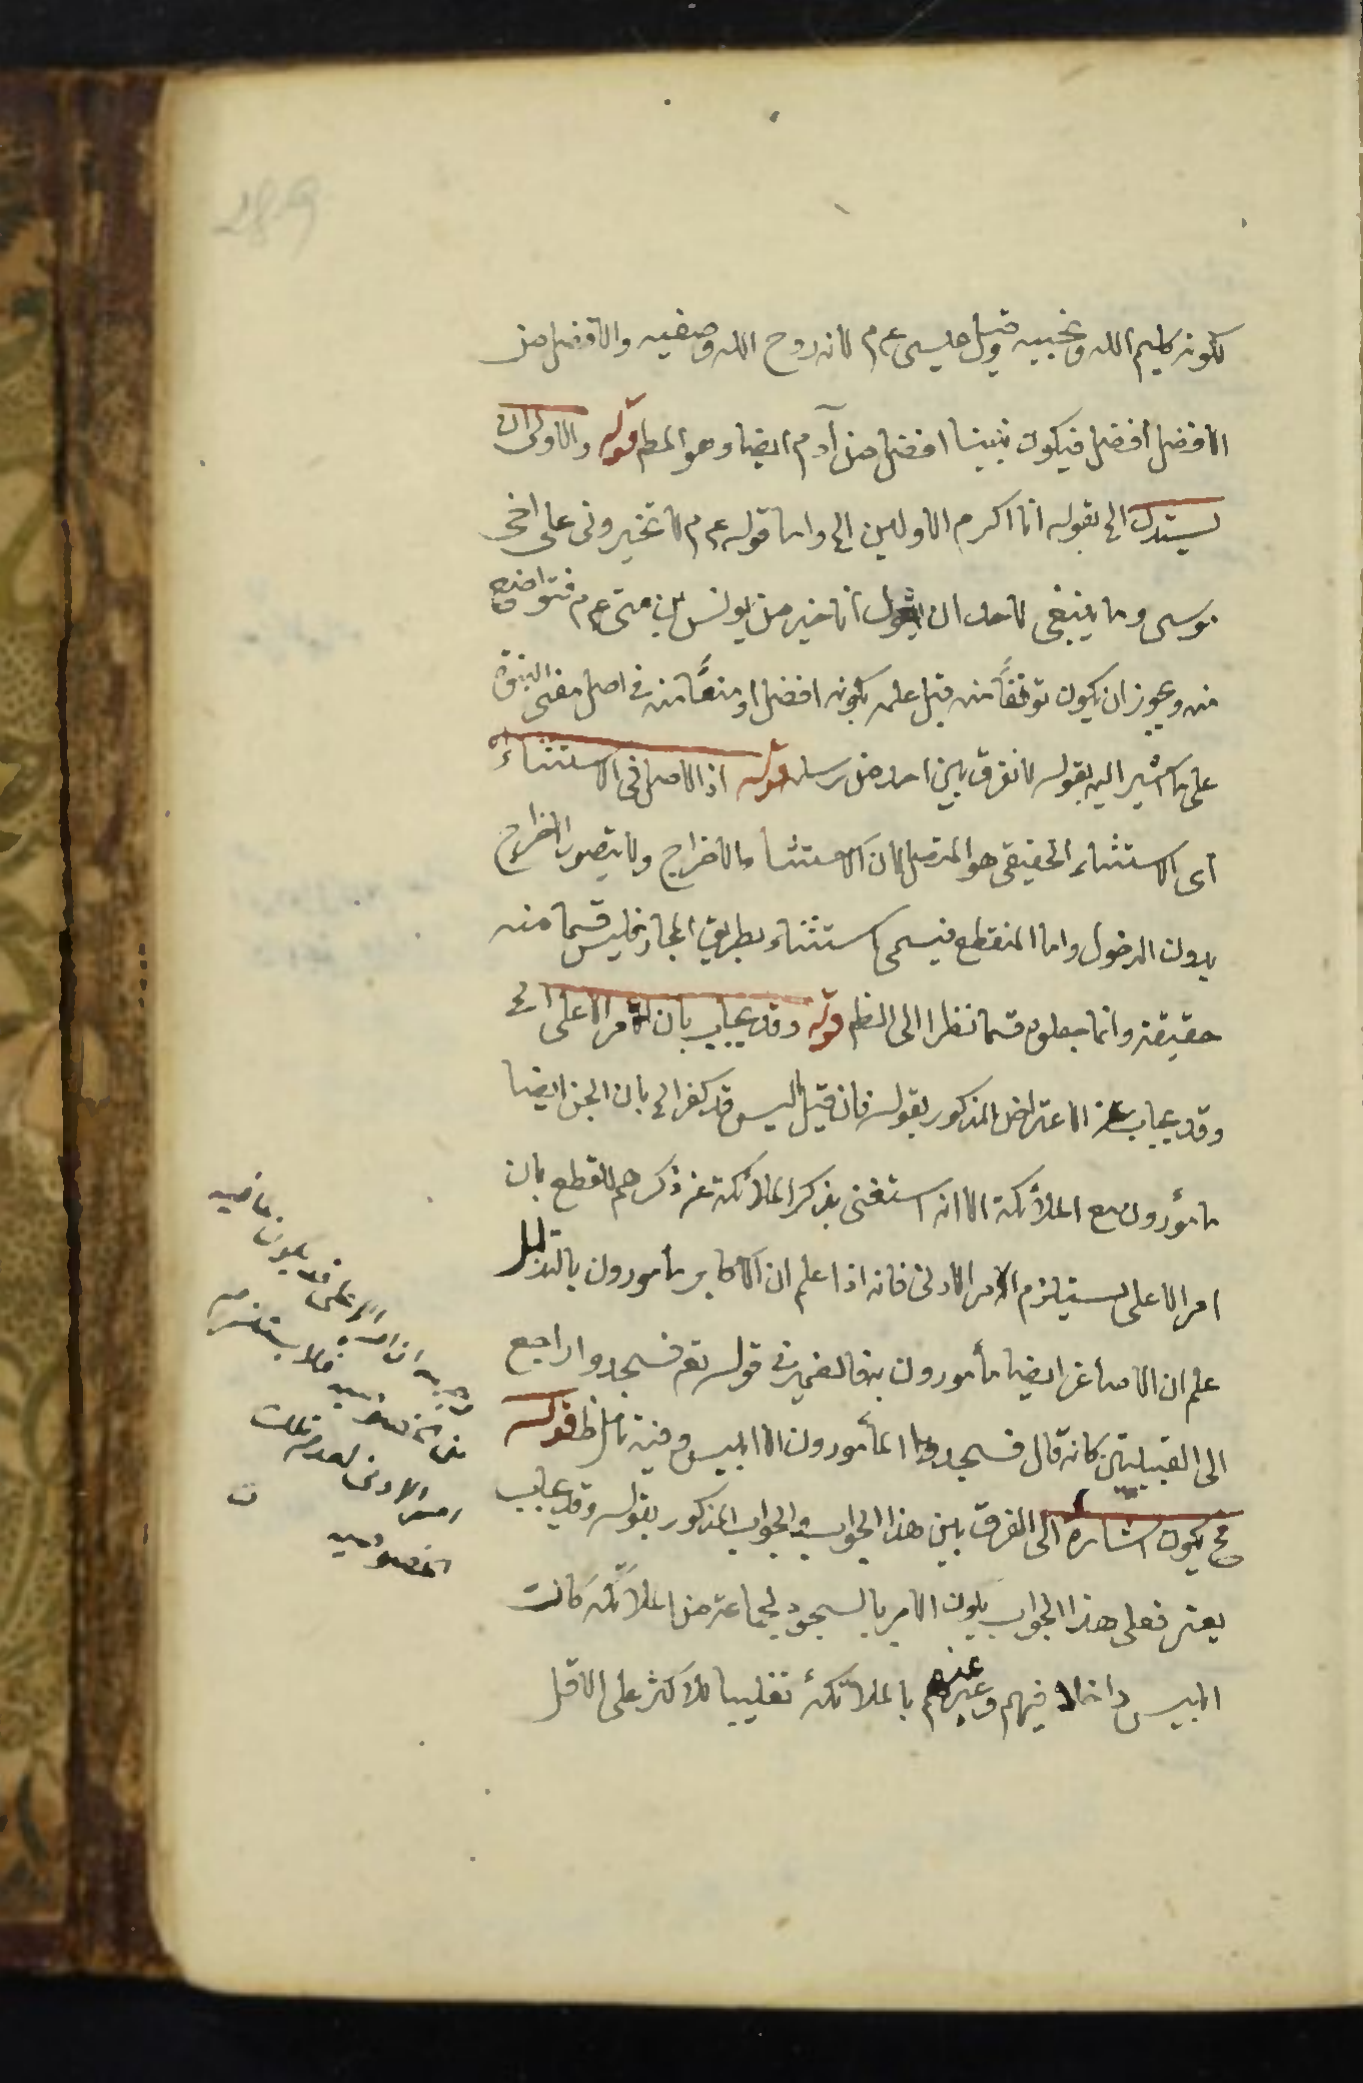 289
لكونه كليم الله ونجيبه وقيل عيسى عم م لانه روح الله وصفيه والافضل من
الافضل افضل فيكون نبينا افضل من آدم ايضا وهو المط قوله والاولى ان
يستدل الخ بقوله انا اكرم الاولين الخ واما قوله عم م لا تخيروني على اخى
موسى وما ينبغى لاحد ان يقول انا خير من يونس بن متى عم م فتواضع
منه ويجوز ان يكون توقفاً منه قبل علمه بكونه افضل او منعاً منه فى اصل معنى النبوة
على ما اشير اليه بقوله لا نفرق بين احد من رسله قوله اذ الاصل فى الاستثناء
اى الاستثناء الحقيقى هو المتصل لان الاستثنا الاخراج ولا يتصور الاخراج
بدون الدخول واما المنقطع فيسمى استثناء بطريق المجاز فليس قسما منه
حقيقة وانما جعلوه قسما نظرا الى الظم قوله وقد يجاب بان امر الاعلى الخ
وقد يجاب عن الاعتراض المذكور بقوله فان قيل اليس قد كفر الخ بان الجن ايضا
مأمورون مع الملائكة الا انه استغنى بذكر الملائكة عن ذكرهم للقطع بان
امر الاعلى يستلزم الامر الادنى فانه اذا علم ان الاكابر مأمورون بالتذلل
علم ان الاصاغر ايضا مأمورون به فالضمير فى قوله تع فسجدوا راجع
الى القبيلتين كانه قال فسجدوا المأمورون الا ابليس وفيه تأمل ظ قوله
فح يكون اشارة الى الفرق بين هذا الجواب والجواب المذكور بقوله وقد يجاب
يعنى فعلى هذا الجواب يكون الامر بالسجود لجماعة من الملائكة كانت
ابليس داخلا فيهم وعبر عنهم بالملائكة تغليبا للاكثر على الاقل
الاعلى قد يكون خاصية
فلا يستلزم
امر الادنى لعدم تلك
الخصوصية